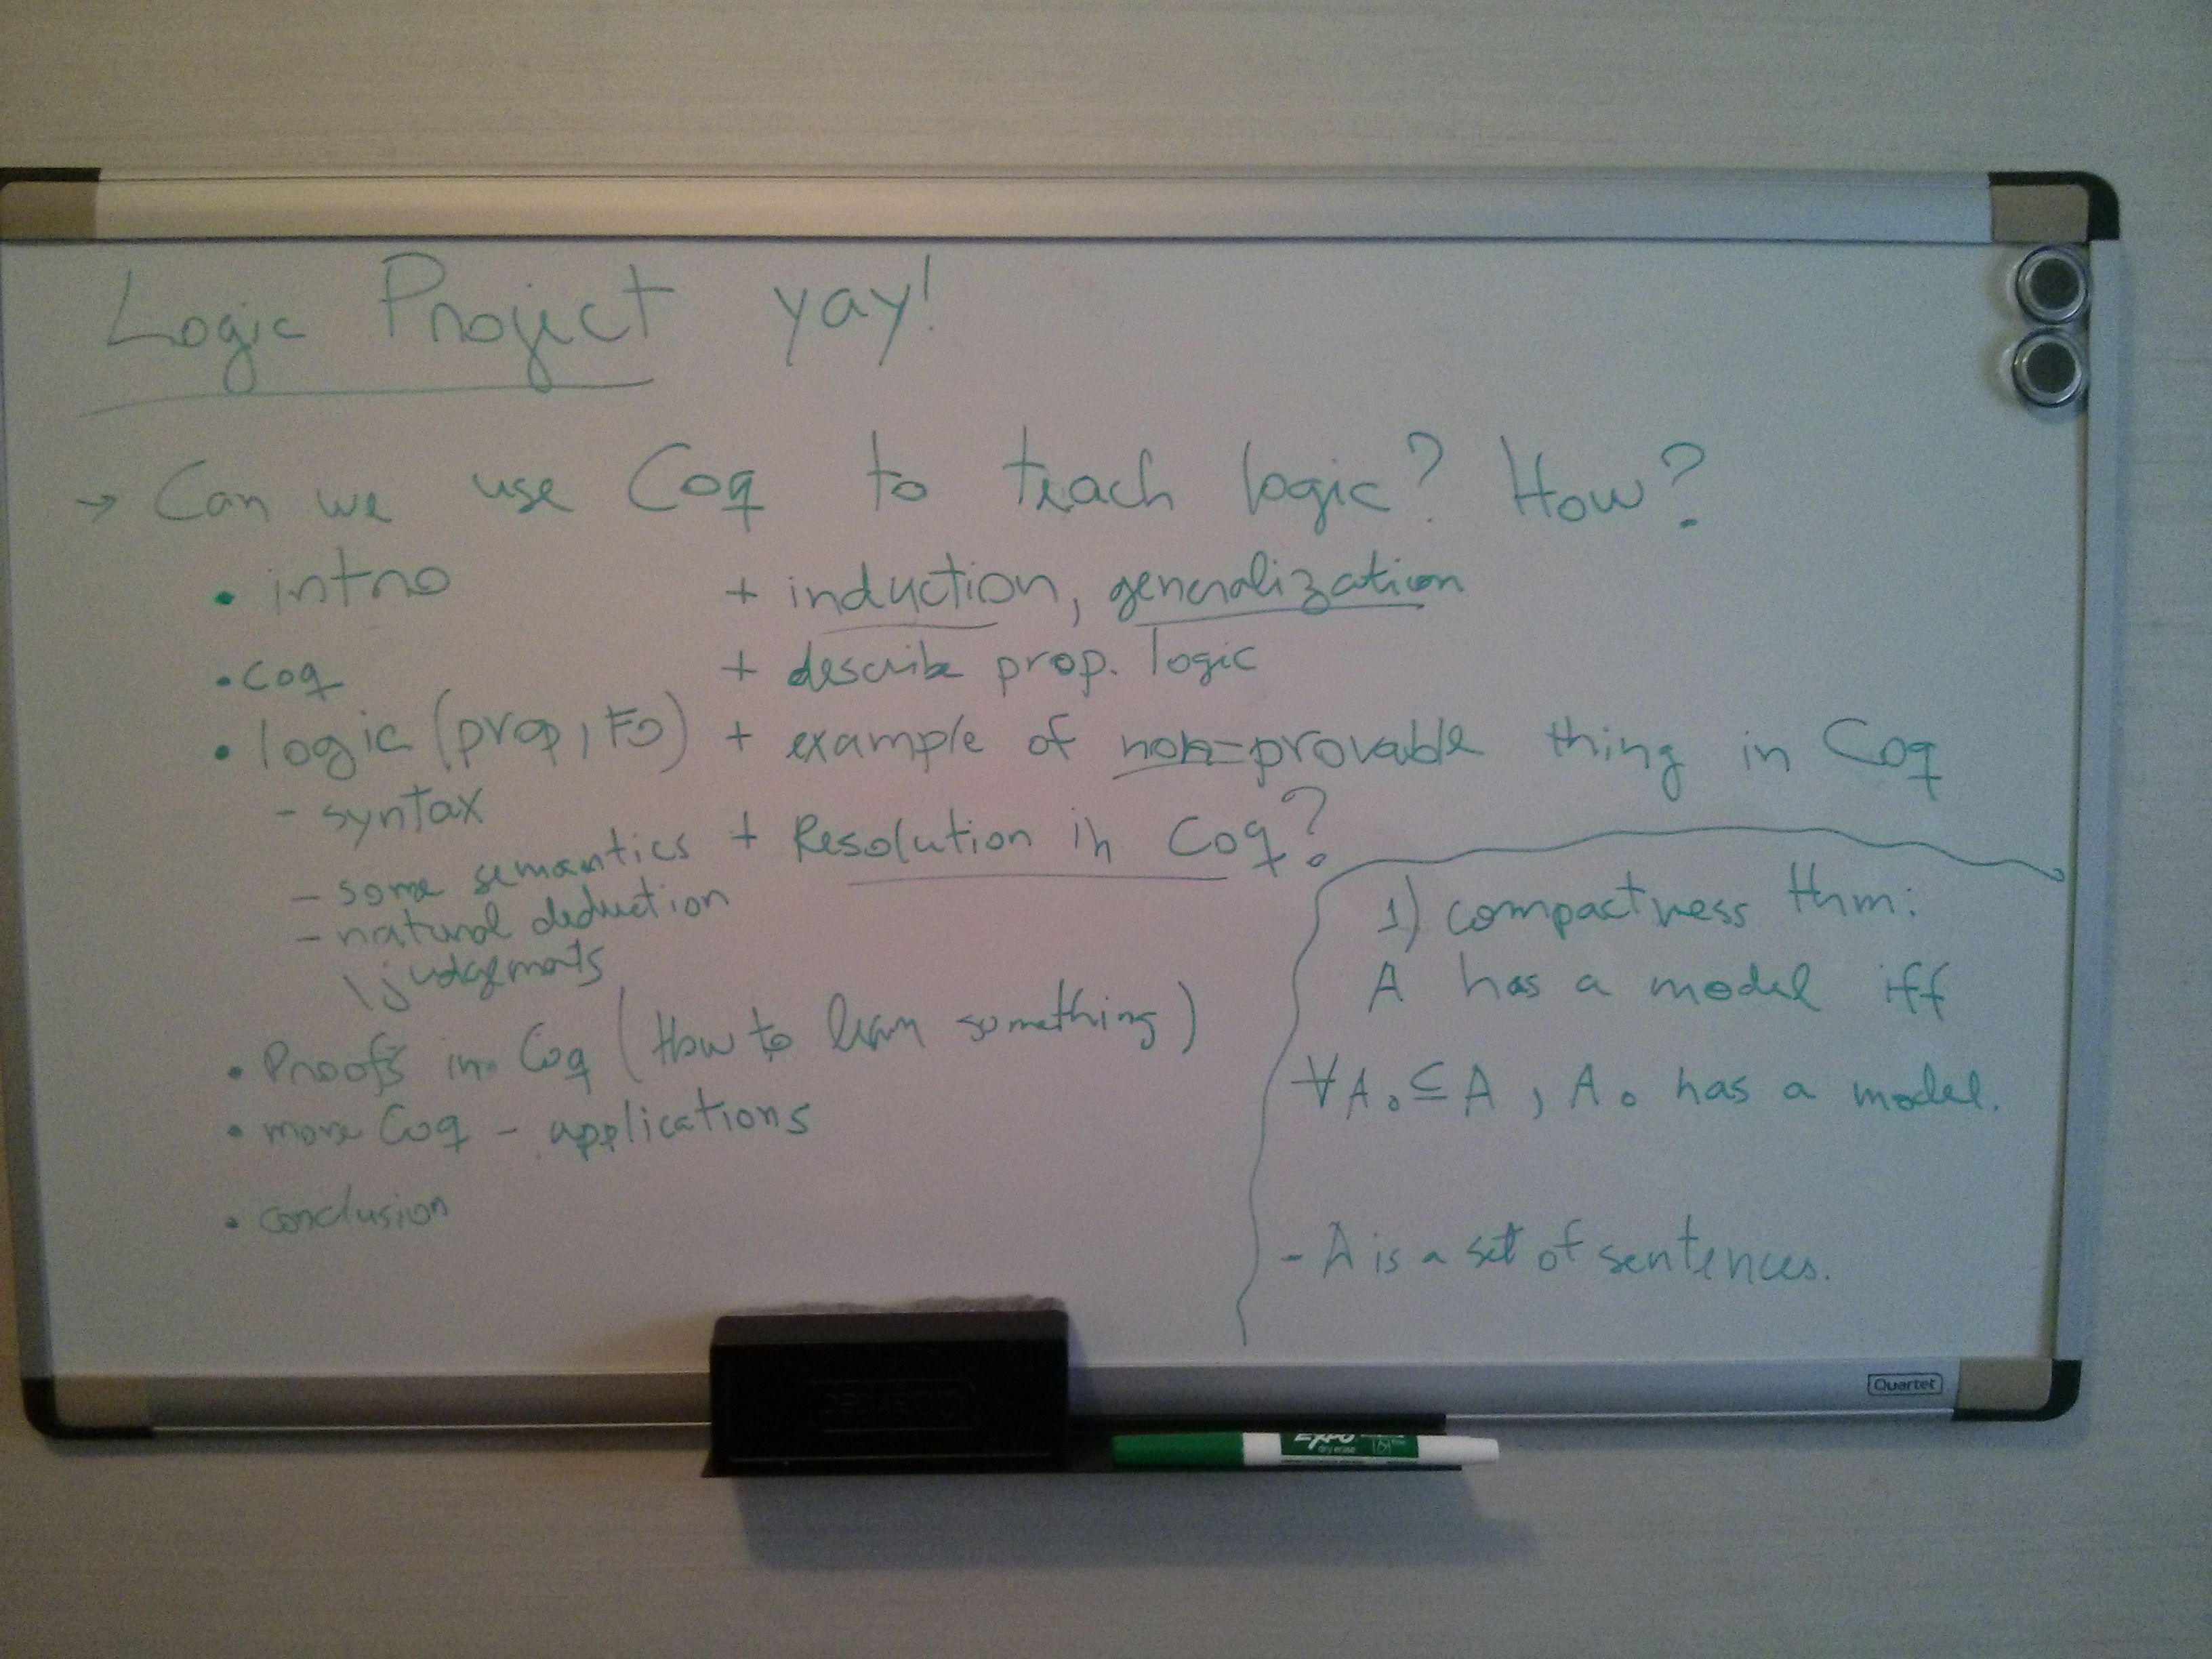 Logic Project yay!
→ Can we use Coq to teach logic? How?
• intro
• coq
• logic (prop, FO)
- syntax
- some semantics
- natural deduction
\ judgements
• Proofs in Coq (How to learn something)
• more Coq - applications
• conclusion
+ induction, generalization
+ describe prop. logic
+ example of non-provable thing in Coq
+ Resolution in Coq?
1) compactness thm:
A has a model iff
∀A₀⊆A, A₀ has a model.
- A is a set of sentences.
Quartet
EXPO
dry erase